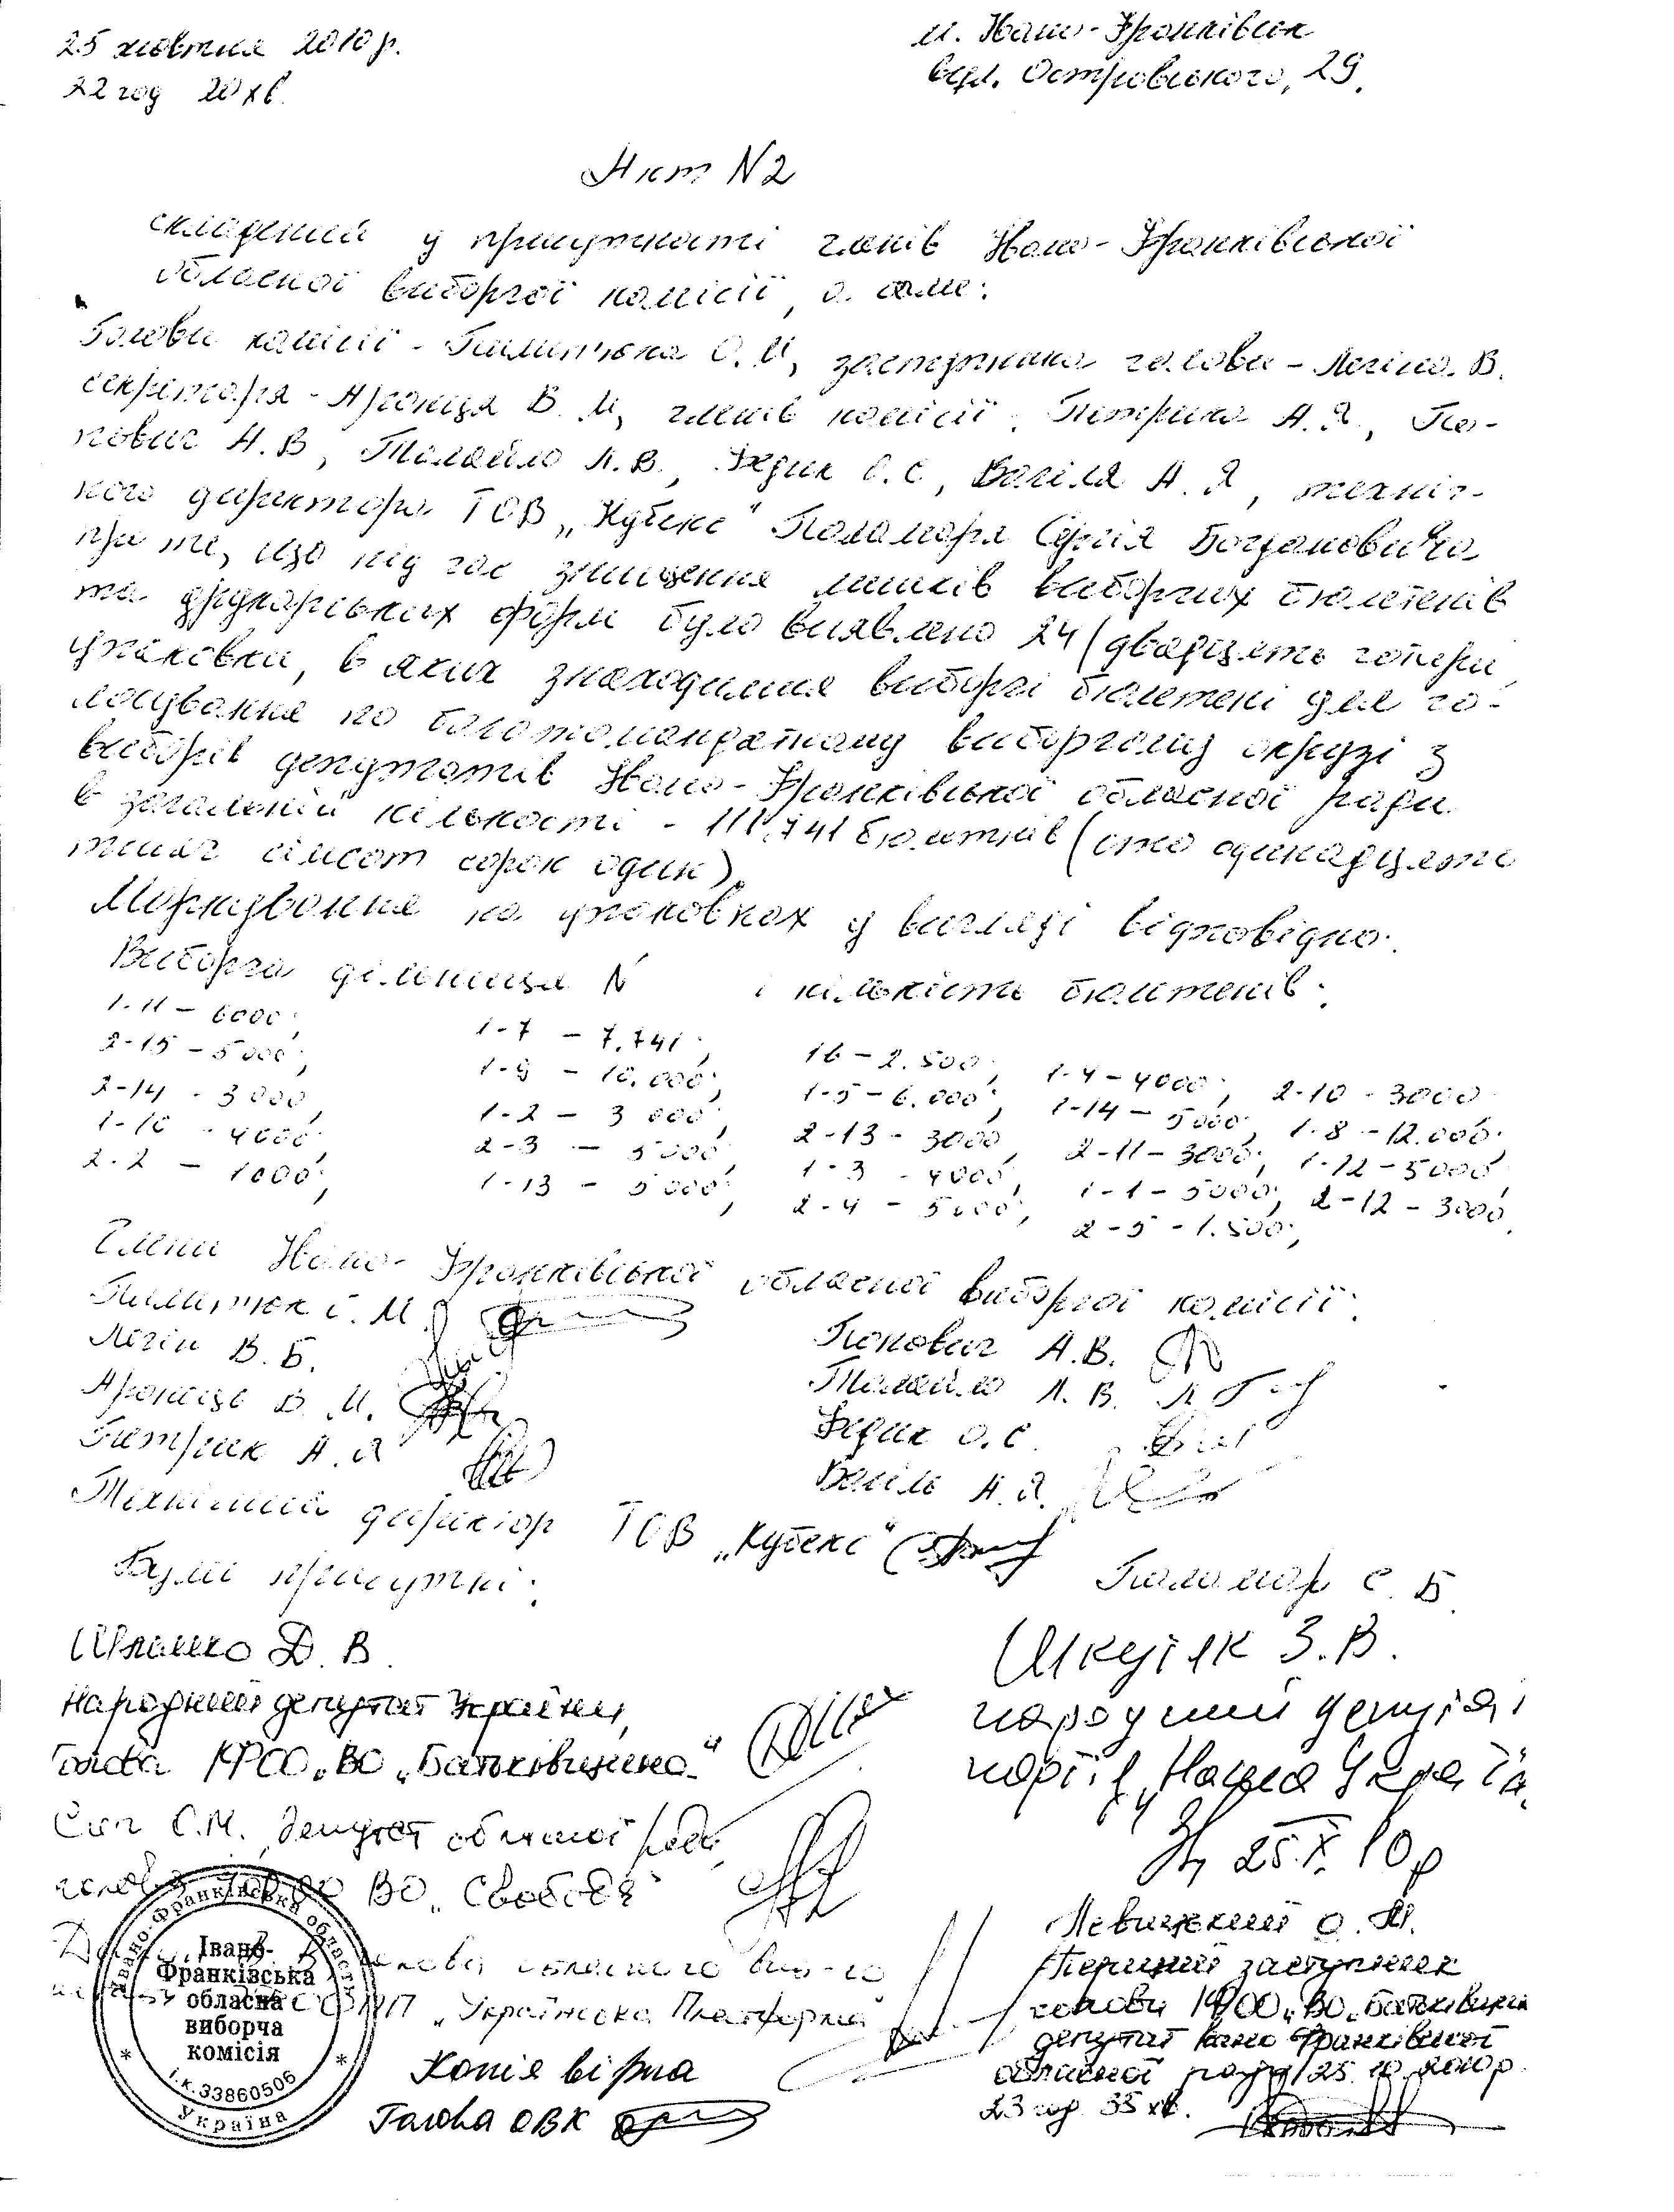 25 жовтня 2010р.
22 год 20 хв.
м. Івано-Франківськ
вул. Островського, 29.
Акт N2
складений у присутності членів Івано-Франківської
обласної виборчої комісії, а саме:
Голови комісії - Пилипюка О.М, заступника голови - Легіна. В.
секретаря - Яронця В. М, членів комісії: Петрика А.Я., По-
пович А.В, Талайло Л.В., Федик О.С, Василя А.Я, техніч-
ного директора ТОВ „Кубекс" Паламаря Сергія Богдановича
про те, що під час знищення лишків виборчих бюлетенів
та друкарських форм було виявлено 24 (двадцять чотири
упаковки, в яких знаходилися виборчі бюлетені для го-
лосування по багатомандатному виборчому окрузі з
виборів депутатів Івано-Франківської обласної ради
в загальній кількості - 111,741 бюлетнів (сто одинадцять
тисяч сімсот сорок один)
Маркування на упаковках у вигляді відповідно:
Виборча дільниця N і кількість бюлетенів:
1-11 - 6000;
2-15 - 5000;
2-14 - 3000,
1-10 - 4000;
2-2 - 1000;
1-7 - 7.741;
1-9 - 10.000;
1-2 - 3 000;
2-3 - 5 000;
1-13 - 5 000;
16 - 2.500;
1-5 - 6.000;
2-13 - 3000,
1-3 - 4000,
2-4 - 5000;
1-4 - 4000;
1-14 - 5000;
2-11 - 3000;
1-1 - 5000;
2-5 - 1.500;
2-10 - 3000
1-8 - 12.000;
1-12 - 5000,
2-12 - 3000.
Члени Івано-Франківської обласної виборчої комісії:
Пилипюк О. М.
Легін В. Б.
Яронць В. М.
Петрик А. Я
Попович А.В.
Талайло Л. В.
Федик О.С.
Василь А.Я.
Технічний директор ТОВ „Кубекс" Паламар С. Б.
Були присутні:
Шлемко Д. В.
Народний депутат України,
Голова ІФОО „ВО „Батьківщина"
Шкутяк З.В.
народний депутат
партія „Наша Україна"
25.X.10р
Сич О.М. депутат обласної ради,
голова ВО „Свобода"
голова обласного
„Українська Платформа"
Левицький О.
Перший заступник
голови ІФОО „ВО „Батьківщина
депутат Івано-Франківської
обласної ради 25.10.2010р.
23 год 35 хв.
Копія вірна
Голова ОВК
Івано-Франківська область
Івано-
Франківська
обласна
виборча
комісія
і.к.33860506
Україна